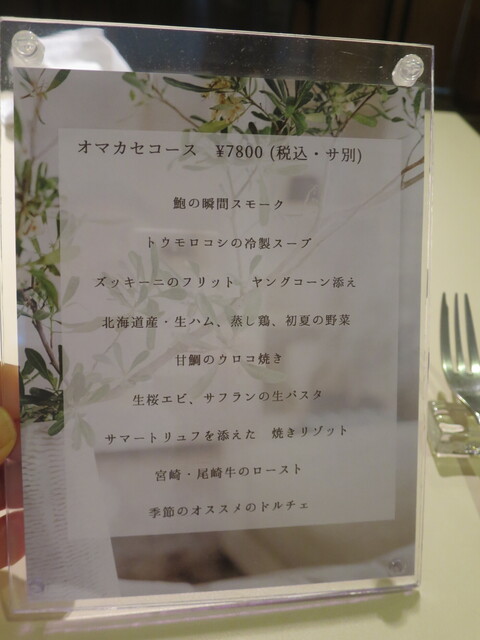 オマカセコース　¥7800 (税込・サ別)
鮑の瞬間スモーク
トウモロコシの冷製スープ
ズッキーニのフリット　ヤングコーン添え
北海道産・生ハム、蒸し鶏、初夏の野菜
甘鯛のウロコ焼き
生桜エビ、サフランの生パスタ
サマートリュフを添えた　焼きリゾット
宮崎・尾崎牛のロースト
季節のオススメのドルチェ